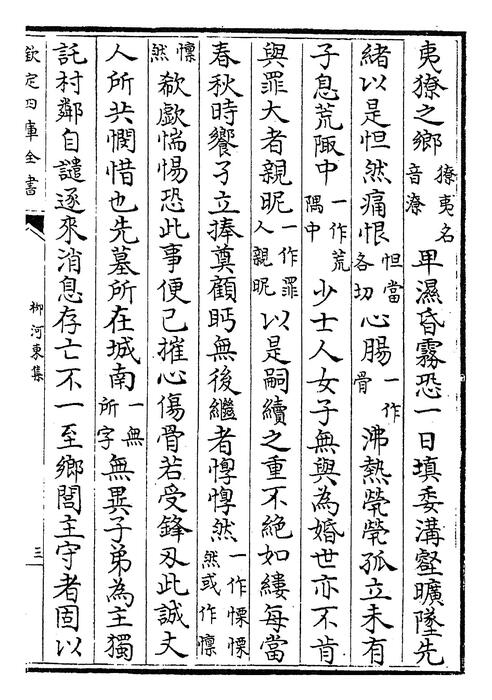 夷獠之鄉獠夷名音潦卑濕昏霧恐一日填委溝壑曠墜先
緒以是怛然痛恨怛當各切心腸一作骨沸熱煢煢孤立未有
子息荒陬中一作荒隅中少士人女子無與為婚世亦不肯
與罪大者親昵一作罪人親昵以是嗣續之重不絕如縷每當
春秋時饗孑立捧奠顧眄無後繼者惸惸然一作慄慄然或作懔
懔然欷歔惴惕恐此事便已摧心傷骨若受鋒刃此誠丈
人所共憫惜也先墓所在城南一無所字無異子弟為主獨
託村鄰自譴逐來消息存亡不一至鄉閭主守者固以
欽定四庫全書
柳河東集
三